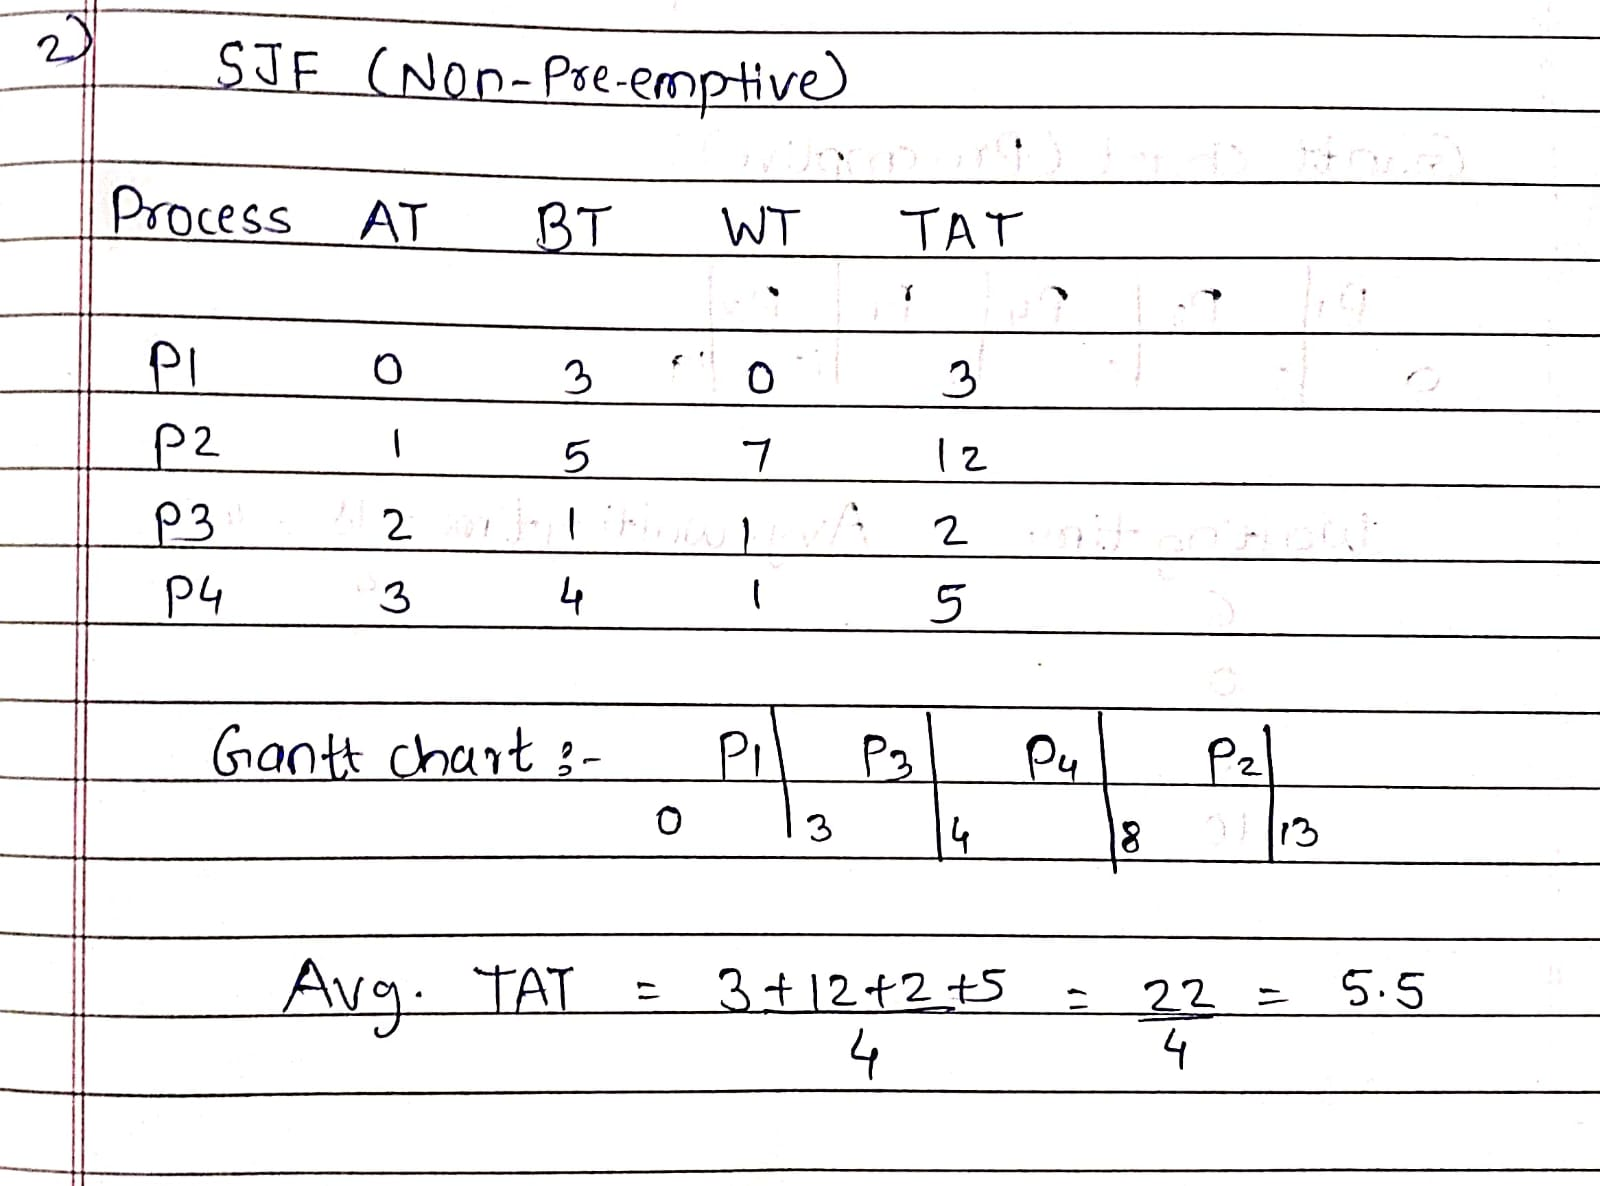 2)
SJF (Non-Pre-emptive)
Process AT BT WT TAT
P1 0 3 0 3
P2 1 5 7 12
P3 2 1 1 2
P4 3 4 1 5
Gantt chart :- P1 | P3 | P4 | P2 |
0 3 4 8 13
Avg. TAT = 3+12+2+5 = 22 = 5.5
4 4